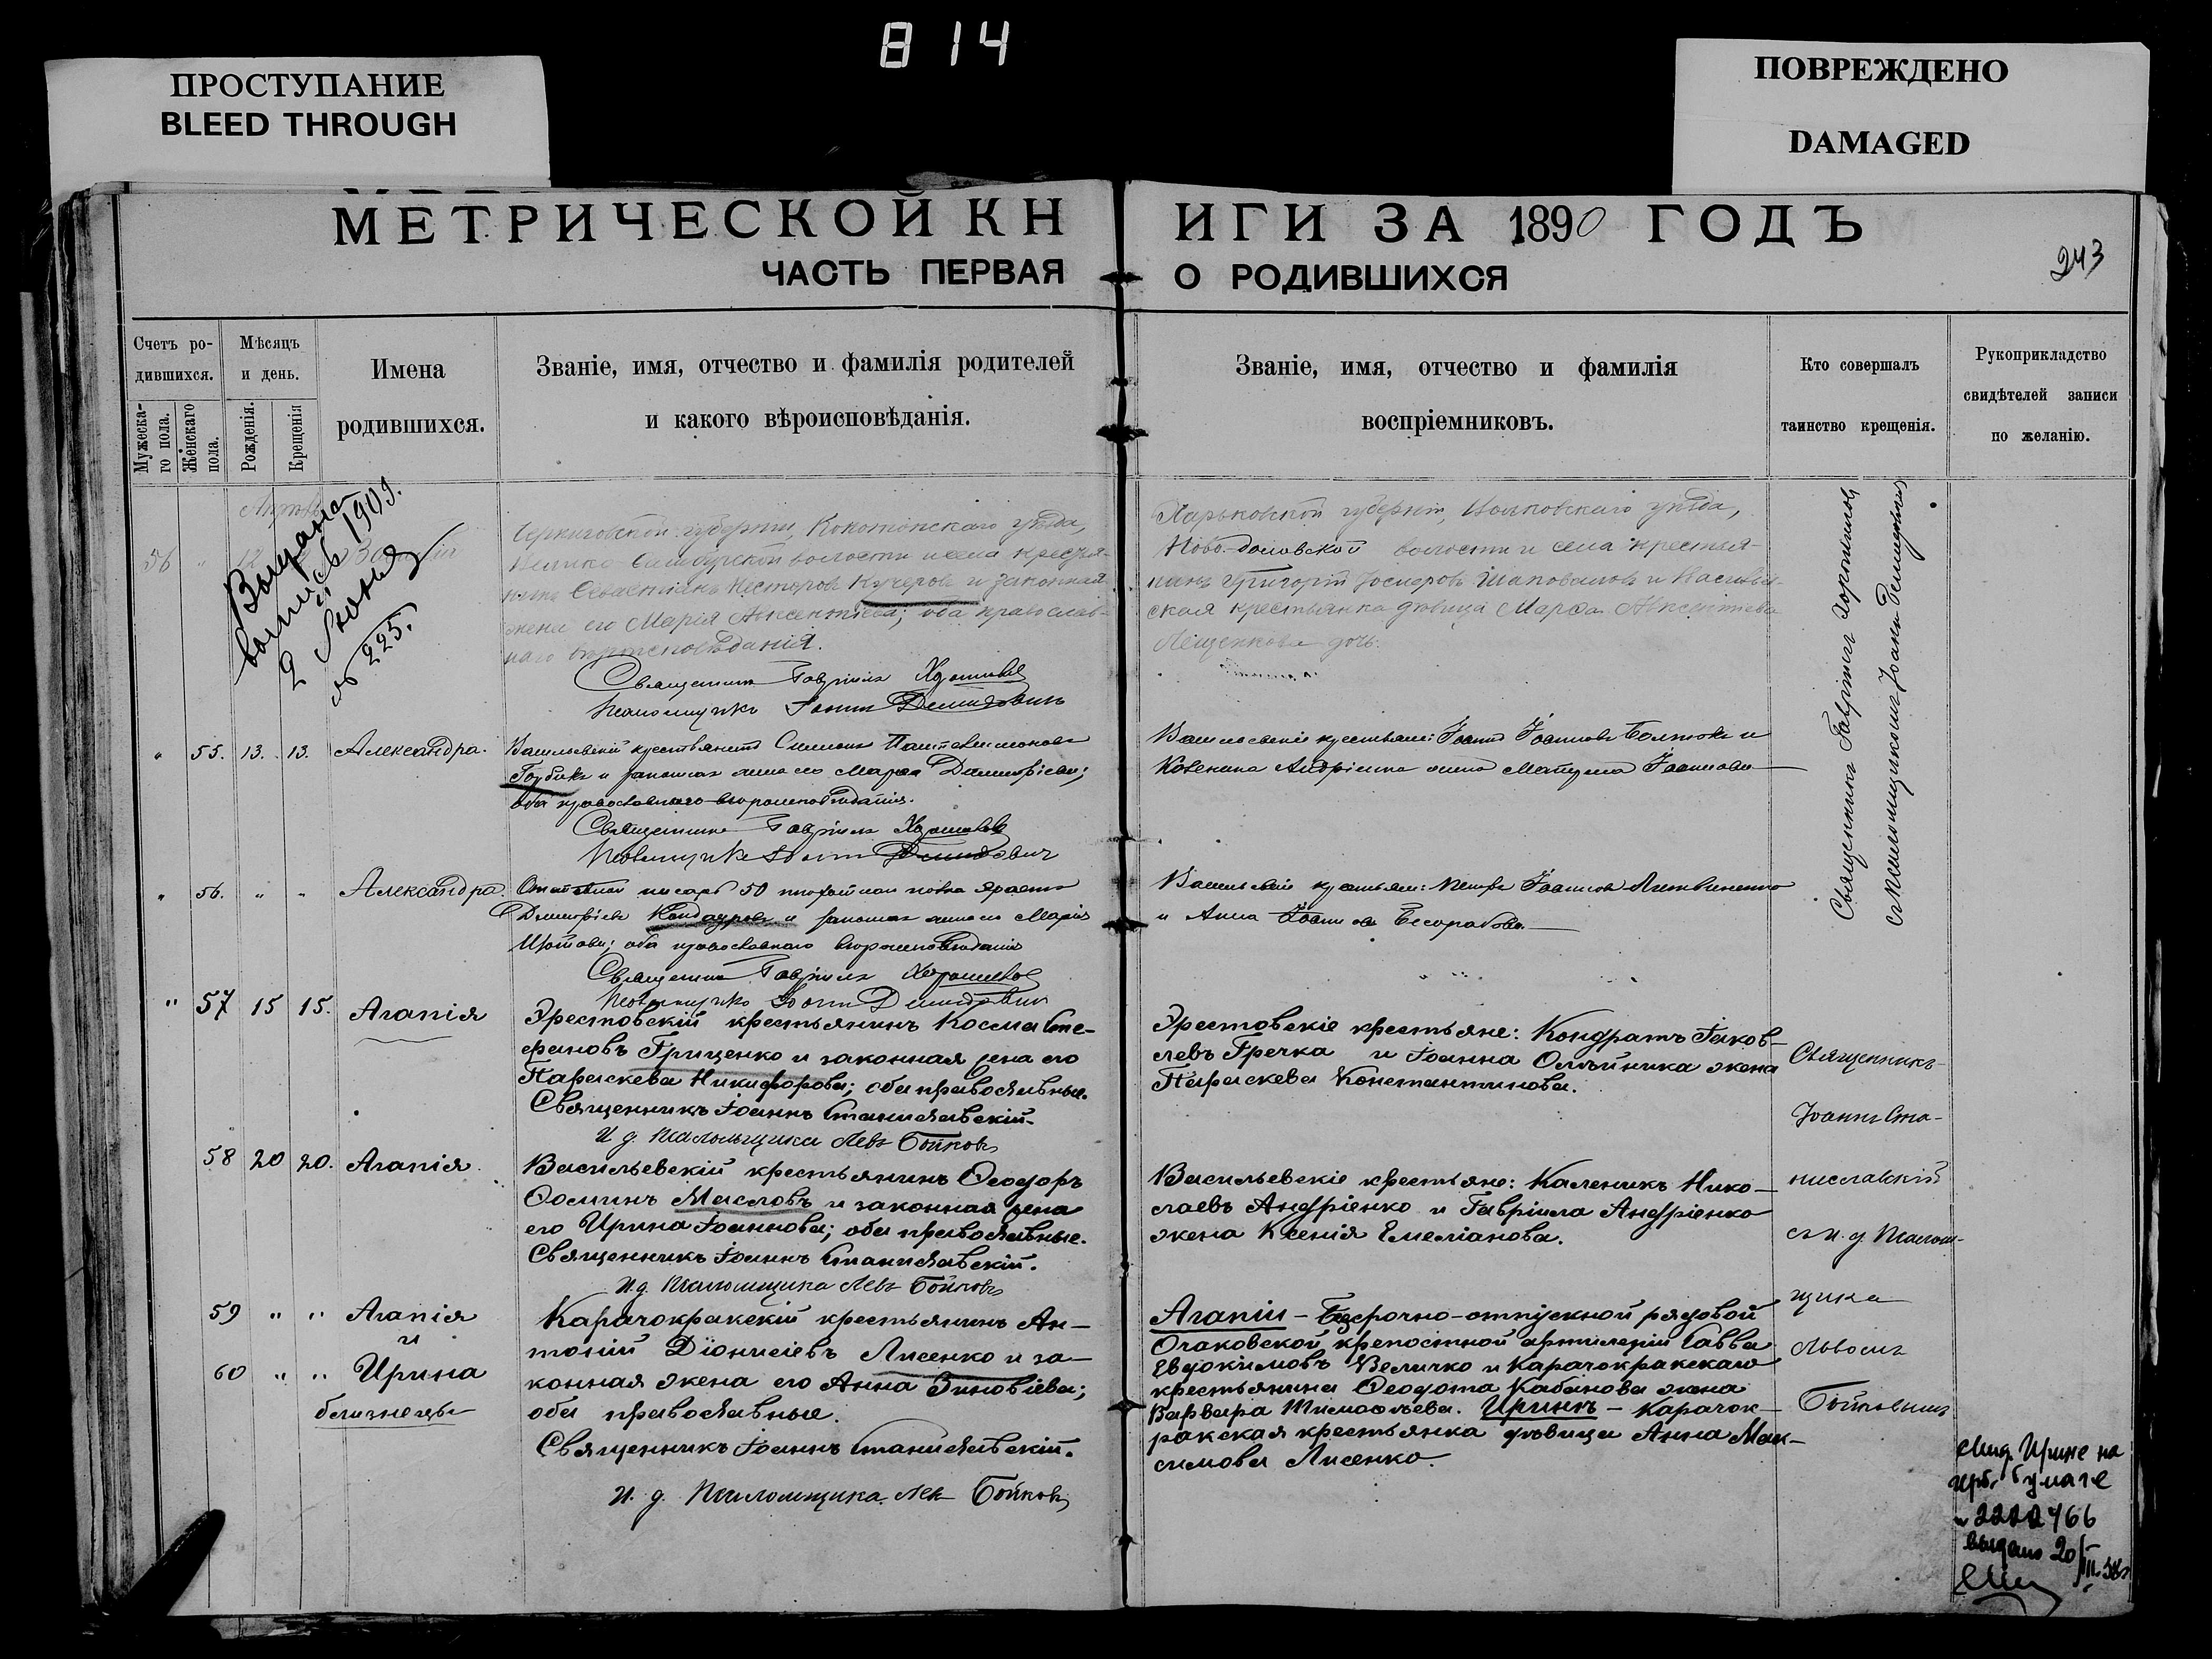 814
ПРОСТУПАНИЕ
BLEED THROUGH
ПОВРЕЖДЕНО
DAMAGED
МЕТРИЧЕСКОЙ КНИГИ ЗА 1890 ГОДЪ
ЧАСТЬ ПЕРВАЯ О РОДИВШИХСЯ
243
Счетъ ро-
дившихся.
Мужеска-
го пола.
Женскаго
пола.
Мѣсяцъ
и день.
Рожденія.
Крещенія
Имена
родившихся.
Званіе, имя, отчество и фамилія родителей
и какого вѣроисповѣданія.
Званіе, имя, отчество и фамилія
воспріемниковъ.
Кто совершалъ
таинство крещенія.
Рукоприкладство
свидѣтелей записи
по желанію.
Выдана
выпись 1909.
2 Іюня
№ 225.
56 " 12
Черниговской губерніи, Конотопскаго уѣзда,
волости и села крестья-
нинъ Севастіянъ Несторовъ Кучеровъ и законная
жена его Марія Авксентіева; оба православ-
наго вѣроисповѣданія.
Священникъ Гавріилъ Хорошиловъ
Псаломщикъ Іоаннъ Демидовичъ
Харьковской губерніи, Волковскаго уѣзда,
Ново- волости и села крестья-
нинъ Григорій Шаповаловъ и Василь-
ская крестьянка дѣвица Марѳа Авксентіева
Лещенкова дочь.
Священникъ Гавріилъ Хорошиловъ
съ псаломщикомъ Іоанн. Демидовичъ
" 55. 13. 13. Александра.
Васильевскій крестьянинъ Симеонъ
Голубъ и законная жена его Марѳа Димитріева;
оба православнаго вѣроисповѣданія.
Священникъ Гавріилъ Хорошиловъ
Псаломщикъ Іоаннъ Демидовичъ
Васильевскіе крестьяне: Іоаннъ Іоанновъ и
Андріенко жена Матрона Іоаннова
" 56. " " Александра
писарь 50 полка
Димитріевъ Кондауровъ и законная жена его Марія
оба православнаго вѣроисповѣданія
Священникъ Гавріилъ Хорошиловъ
Псаломщикъ Іоаннъ Демидовичъ
Васильевскіе крестьяне: Петръ Іоанновъ Литвиненко
и Анна Іоаннова
" 57 15 15. Агапія
Эрестовскій крестьянинъ Косма Сте-
фановъ Гриценко и законная жена его
Параскева Никифорова; оба православные.
Священникъ Іоаннъ Станиславскій.
И. д. псаломщика Левъ Бойковъ
Эрестовскіе крестьяне: Кондратъ Іаков-
левъ Гречка и Іоанна Олѣйника жена
Параскева Константинова.
Священникъ
Іоаннъ Ста-
ниславскій
съ и. д. псалом-
щика
Львомъ
Бойковымъ
58 20 20. Агапія
Васильевскій крестьянинъ Ѳеодоръ
Ѳоминъ Масловъ и законная жена
его Ирина Іоаннова; оба православные.
Священникъ Іоаннъ Станиславскій.
И. д. псаломщика Левъ Бойковъ
Васильевскіе крестьяне: Каленикъ Нико-
лаевъ Андріенко и Гавріила Андріенко
жена Ксенія Емеліанова.
59 " " Агапія
и
60 " " Ирина
близнецы
Карачокракскій крестьянинъ Ан-
тоній Діонисіевъ Лисенко и за-
конная жена его Анна Зиновіева;
оба православные.
Священникъ Іоаннъ Станиславскій.
И. д. псаломщика Левъ Бойковъ
Агапіи – Безсрочно-отпускной рядовой
Очаковской крепостной артилеріи Савва
Евдокимовъ Величко и Карачокракскаго
крестьянина Ѳеодота Кабанова жена
Варвара Тимоѳеева. Иринѣ – Карачок-
ракская крестьянка дѣвица Анна Мак-
симова Лисенко.
Ирине на
герб. бумаге
№ 2222466
выдано 20/III